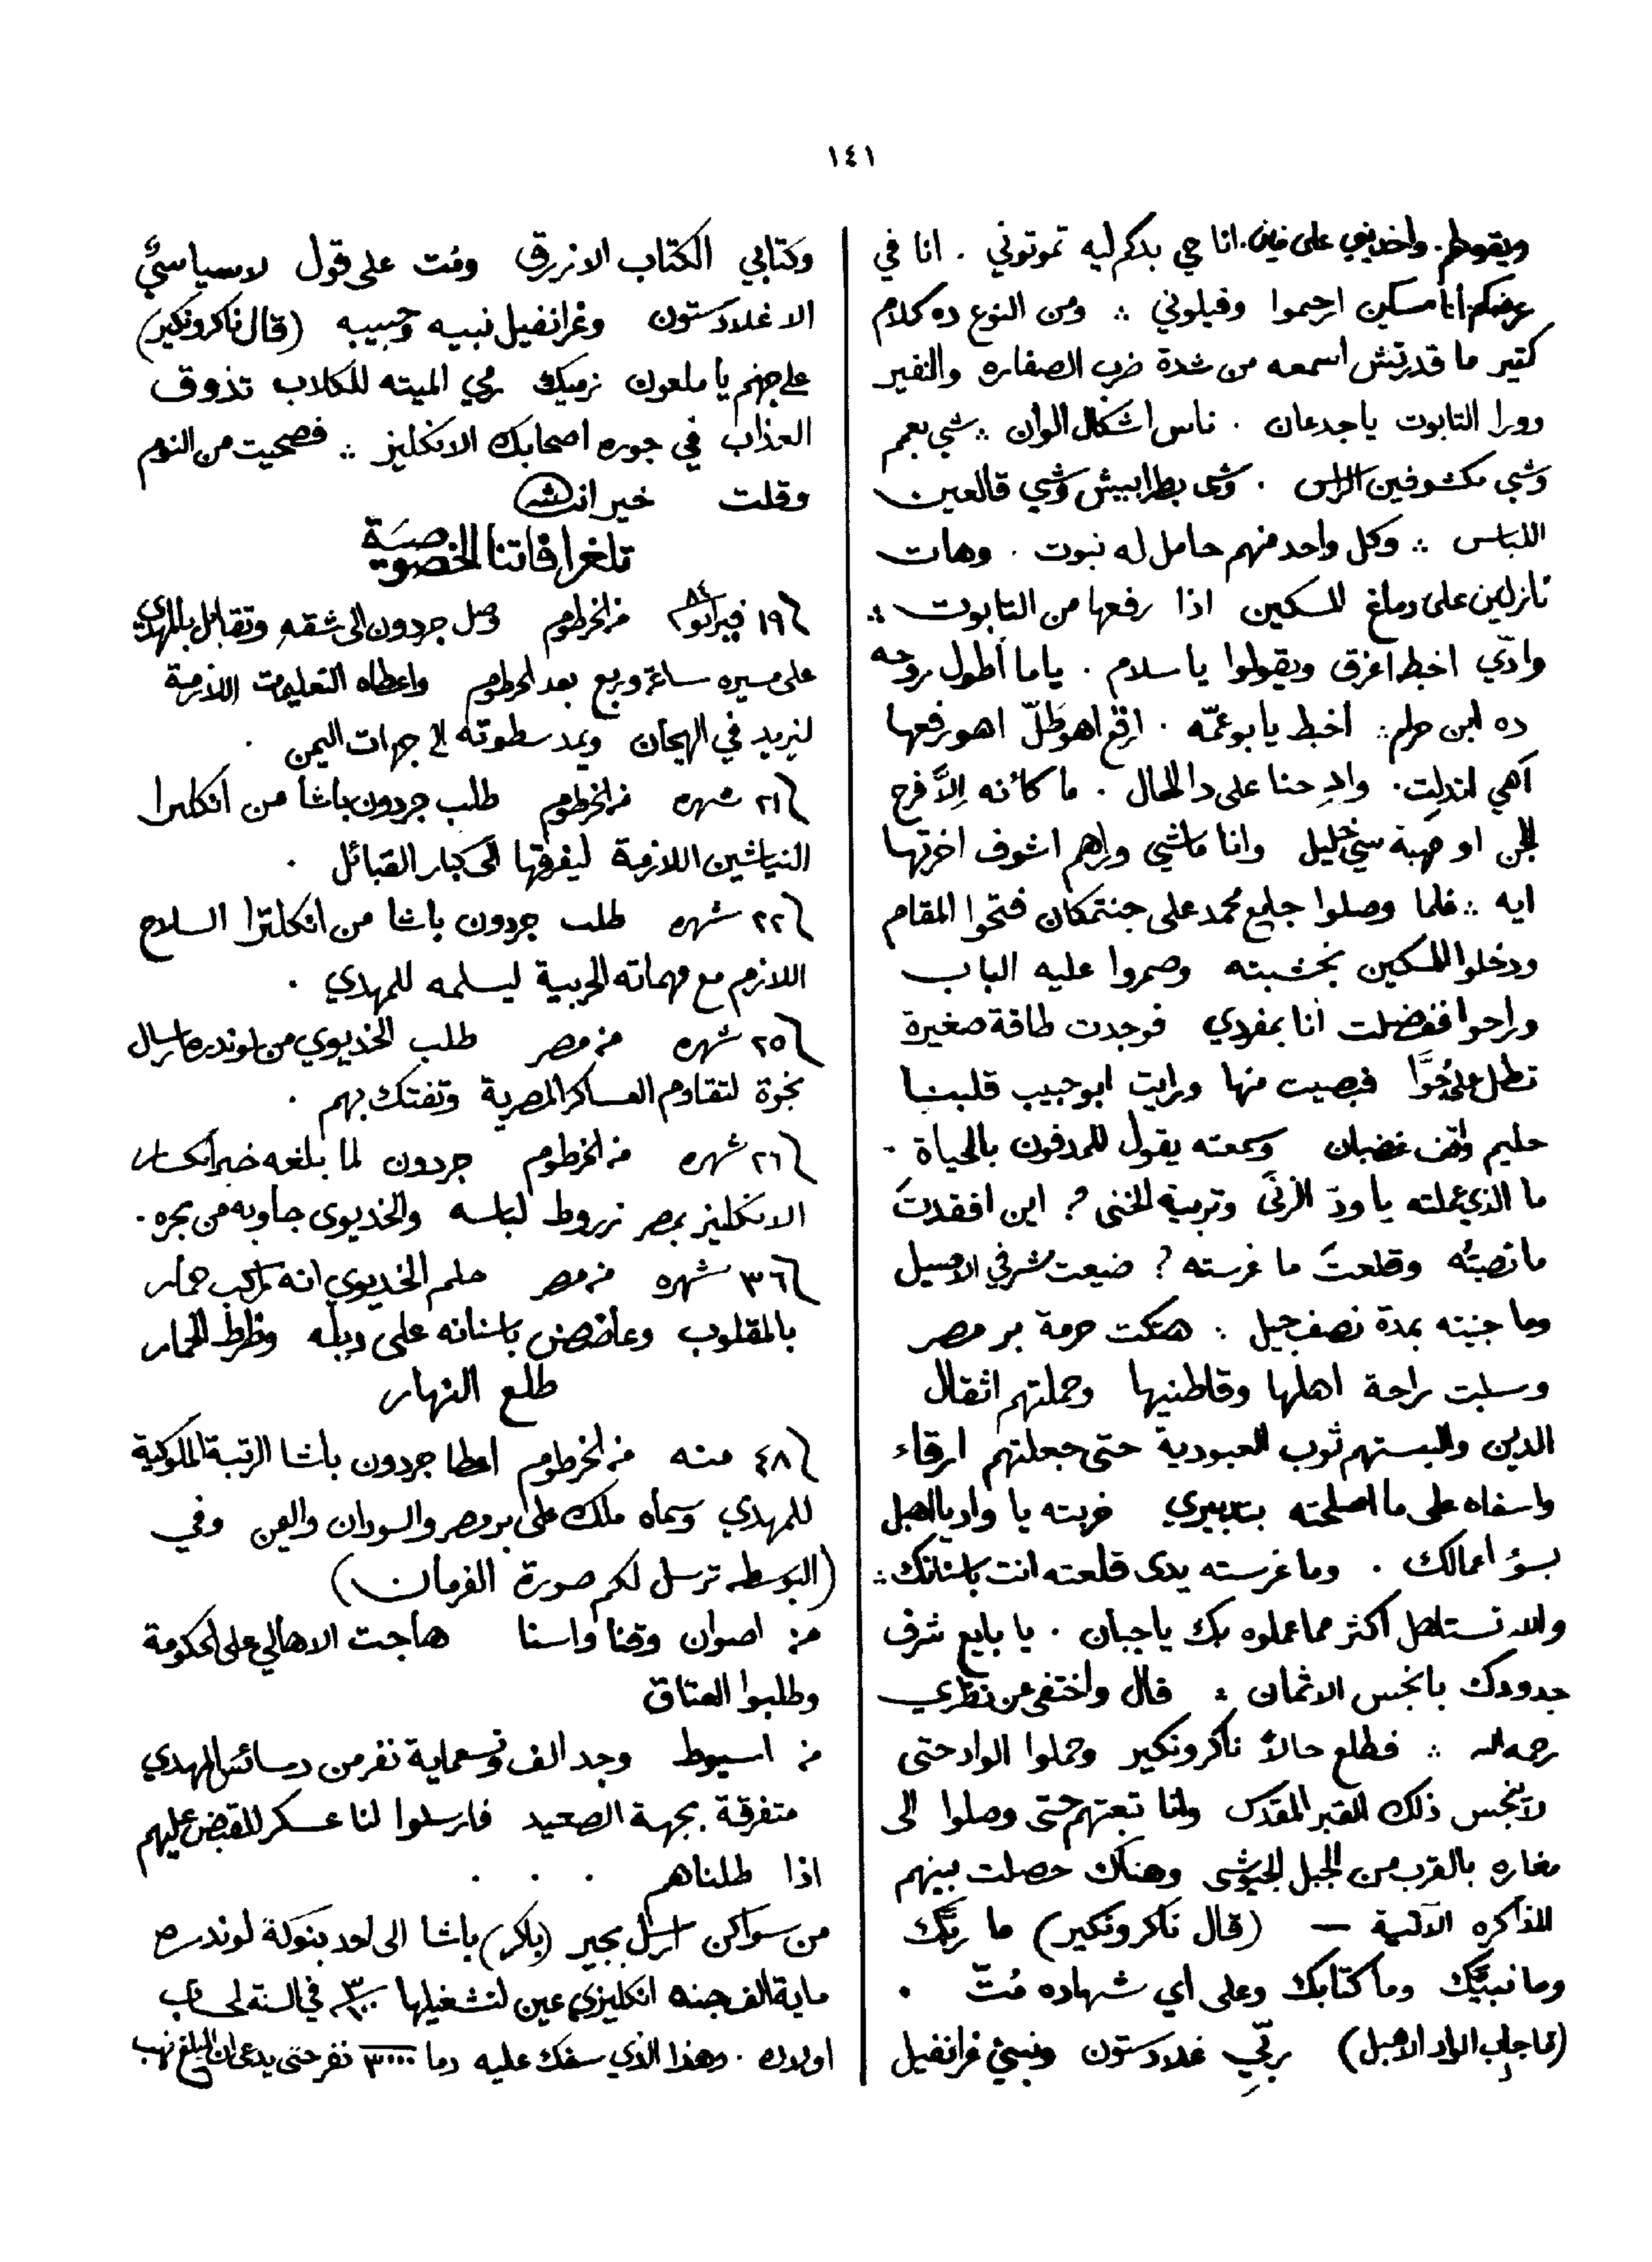 ١٤١
ويقولهم. واخديني على فين. انا حي بدكم ليه تموتوني . انا في
عرضكم انا مسكين ارحموا وفيلوني ؞ ومن النوع ده كلام
كتير ما قدرتش اسمعه من شدة ضرب الصفاره والنفير
وورا التابوت ياجدعان . ناس اشكال الوان ؞ شي بعمم
وشي مكشوفين الراس . وشى بطرابيش وشي قالعين
اللباس ؞ وكل واحد منهم حامل له نبوت . وهات
نازلين على دماغ المسكين اذا رفعها من التابوت ؞
وادّي اخبط اغرق ويقولوا ياسلام . ياما أطول روحه
ده ابن حرام ؞ اخبط يابوعمّه . ارقع اهو طلّ اهو رفعها
آهي اندلت . وادِحنا على دا الحال . ما كانه اِلاَّ فرح
للجن او صهبة سي خليل وانا ماشي وراهم اشوف اخرتها
ايه ؞ فلما وصلوا جامع محمد على جنتمكان فتحوا المقام
ودخلوا المسكين بخشبته وصمروا عليه الباب
وراحوا ففضلت أنا بمفردي فوجدت طاقة صغيرة
تطل على جُوَّا فبصيت منها ورايت ابو حبيب قلبنا
حليم واقف غضبان وسمعته يقول للمدفون بالحياة .
ما الذي عملته ياودّ الزنَى وتربية الخنى ? اين افقدتَ
ما نصبتُه وقلعتَ ما غرسته ? ضيعت شرفي الاصيل
وما جنيته بمدة نصف جيل ؞ هتكت حرمة بر مصر
وسلبت راحة اهلها وقاطنيها وحملتهم اثقال
الدين والبستهم ثوب العبودية حتى جعلتهم ارقاء
واسفاه على ما اصلحته بتدبيري خربته يا واد يا اهبل
بسوء اعمالك . وما غرسته يدى قلعته انت باسنانك ؞
والله تستاهل اكثر مما عملوه بك ياجبان . يا بايع شرف
جدودك بانجس الاثمان ؞ قال واختفى من نظري
رحمه الله ؞ فطلع حالاً ناكر ونكير وحملوا الواد حتى
لاينجس ذلك القبر المقدس وانا تبعتهم حتى وصلوا الى
مغاره بالقرب من الجبل الجيوشى وهناك حصلت بينهم
المذاكره الآتية — (قال ناكر ونكير) ما ربّك
وما نبيّك وما كتابك وعلى اي شهاده مُتّ .
(فاجاب الواد الاهبل) ربّي غلادستون ونبيي غرانفيل
وكتابي الكتاب الازرق ومُت على قول لاسياسيٌّ
الا غلادستون وغرانفيل نبيه وحبيبه (قال ناكر ونكير)
على جهنم يا ملعون نرميك رمي الميته للكلاب تذوق
العذاب في جوره اصحابك الانكليز ؞ فصحيت من النوم
وقلت خير انشالله
تلغرافاتنا الخصوصية
١٩ فبراير ٨٤ من الخرطوم وصل جردون الى شقه وتقابل بالمهدي
على مسيره ساعة وربع بعد الخرطوم واعطاه التعليمات اللازمة
ليزيد في الهيجان ويمد سطوته الى جهات اليمن .
٢١ شهره من الخرطوم طلب جردون باشا من انكلترا
النياشين اللازمة ليفرقها الى كبار القبائل .
٢٢ شهره طلب جردون باشا من انكلترا السلاح
اللازم مع مهماته الحربية ليسلمه للمهدي .
٢٥ شهره من مصر طلب الخديوي من لوندره ارسال
نجوة لتقاوم العساكر المصرية وتفتك بهم .
٢٦ شهره من الخرطوم جردون لما بلغه خبر انكسار
الانكليز بمصر زروط لباسه والخديوى جاوبه من بحره .
٣٦ شهره من مصر حلم الخديوي انه راكب حمار
بالمقلوب وعاضض باسنانه على ديله وظرط الحمار
طلع النهار
٤٨ منه من الخرطوم اعطا جردون باشا الرتبة الملوكية
للمهدي وسماه ملك على بر مصر والسودان واليمن وفي
(البوسطه ترسل لكم صورة الفرمان)
من اصوان وقنا واسنا هاجت الاهالي على الحكومة
وطلبوا العتاق
من اسيوط وجد الف وتسعماية نفر من دسائس المهدي
متفرقة بجهة الصعيد فارسلوا لنا عسكر للقبض عليهم
اذا طلناهم . . .
من سواكن ارسل بجير (باكر) باشا الى احد بنوكة لوندره
ماية الف جنه انكليزي عين لتشغيلها ٣/١٠٠ في السنة لحساب
اولاده . وهذا الذي سفك عليه دما ٣٠٠٠ نفر حتى يدعى ان المبلغ نهب